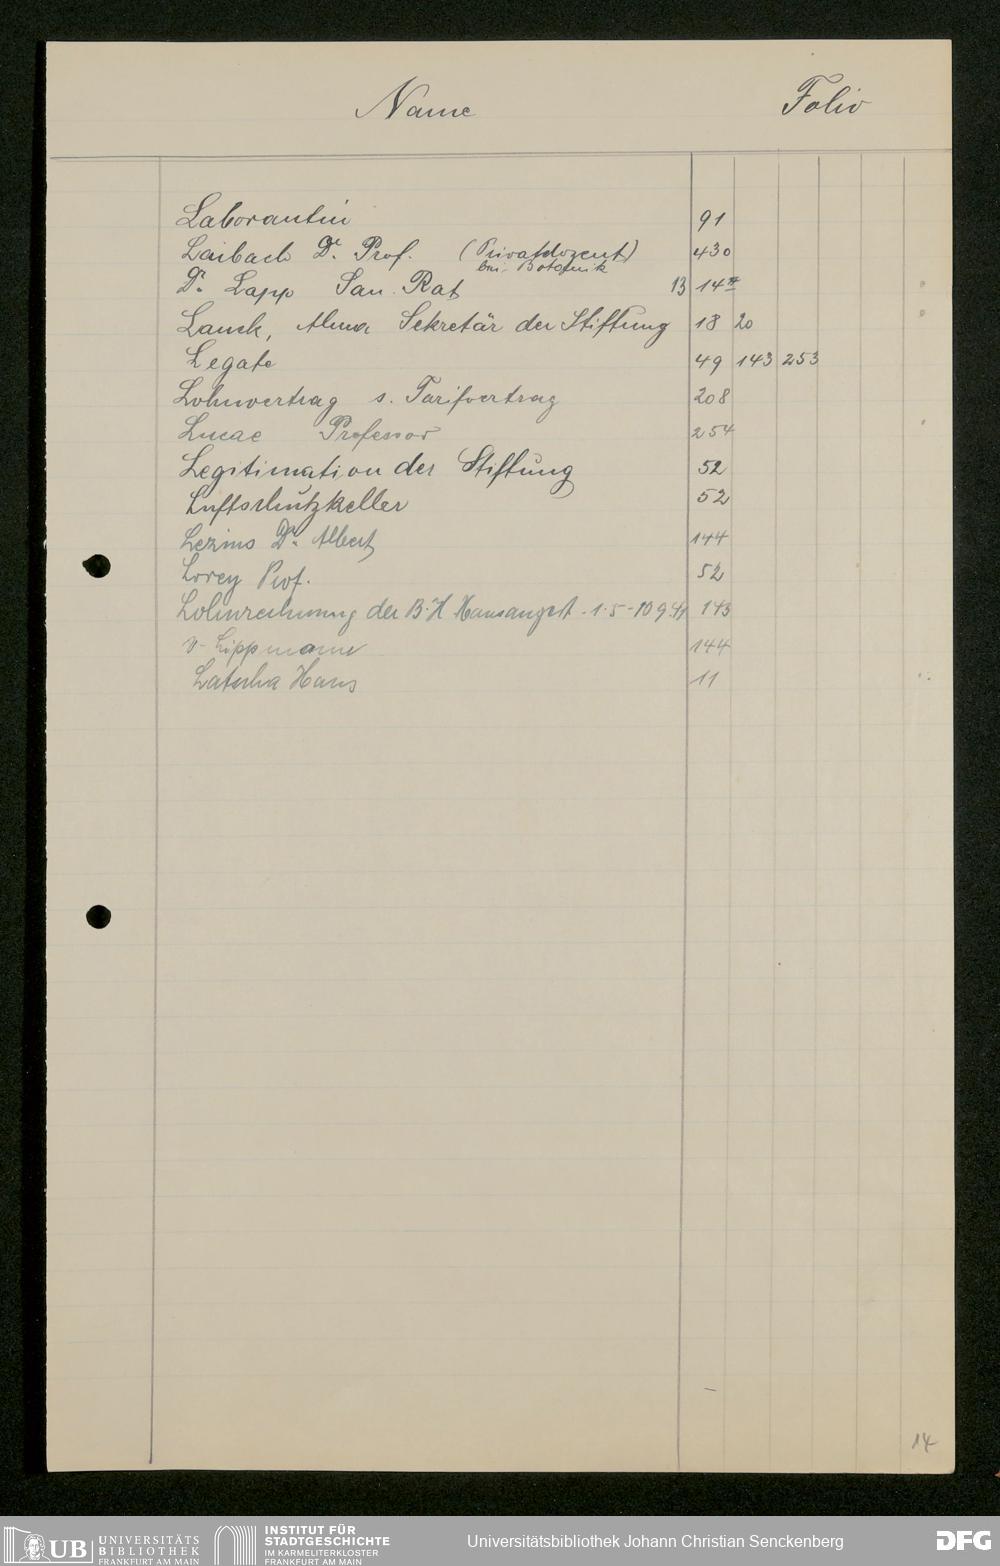 Name Folio
Laborantin 91
Laibach Dr. Prof. (Privatdozent) 430
bei Botanik
Dr. Lapp San. Rat 13 14
Lauck, Alma Sekretär der Stiftung 18 20
Legate 49 143 253
Lohnvertrag s. Tarifvertrag 208
Lucae Professor 254
Legitimation der Stiftung 52
Luftschutzkeller 52
Lezius Dr. Albert 144
Lorey Prof. 52
Lohnrechnung der B.H Hausangest. 1.5-10 9 41 143
v. Lippmann 144
Latscha Hans 11
14
UB UNIVERSITÄTS
BIBLIOTHEK
FRANKFURT AM MAIN
INSTITUT FÜR
STADTGESCHICHTE
IM KARMELITERKLOSTER
FRANKFURT AM MAIN
Universitätsbibliothek Johann Christian Senckenberg
DFG